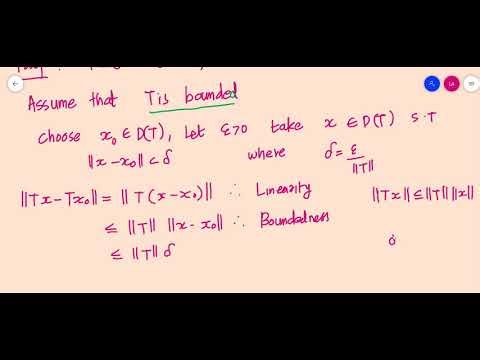 Assume that T is bounded
choose x₀ ∈ D(T), Let ε>0 take x ∈ D(T) s.t
||x-x₀|| < δ where δ = ε/||T||
||Tx-Tx₀|| = ||T(x-x₀)|| ∴ Linearity ||Tx|| ≤ ||T|| ||x||
≤ ||T|| ||x-x₀|| ∴ Boundedness
≤ ||T|| δ